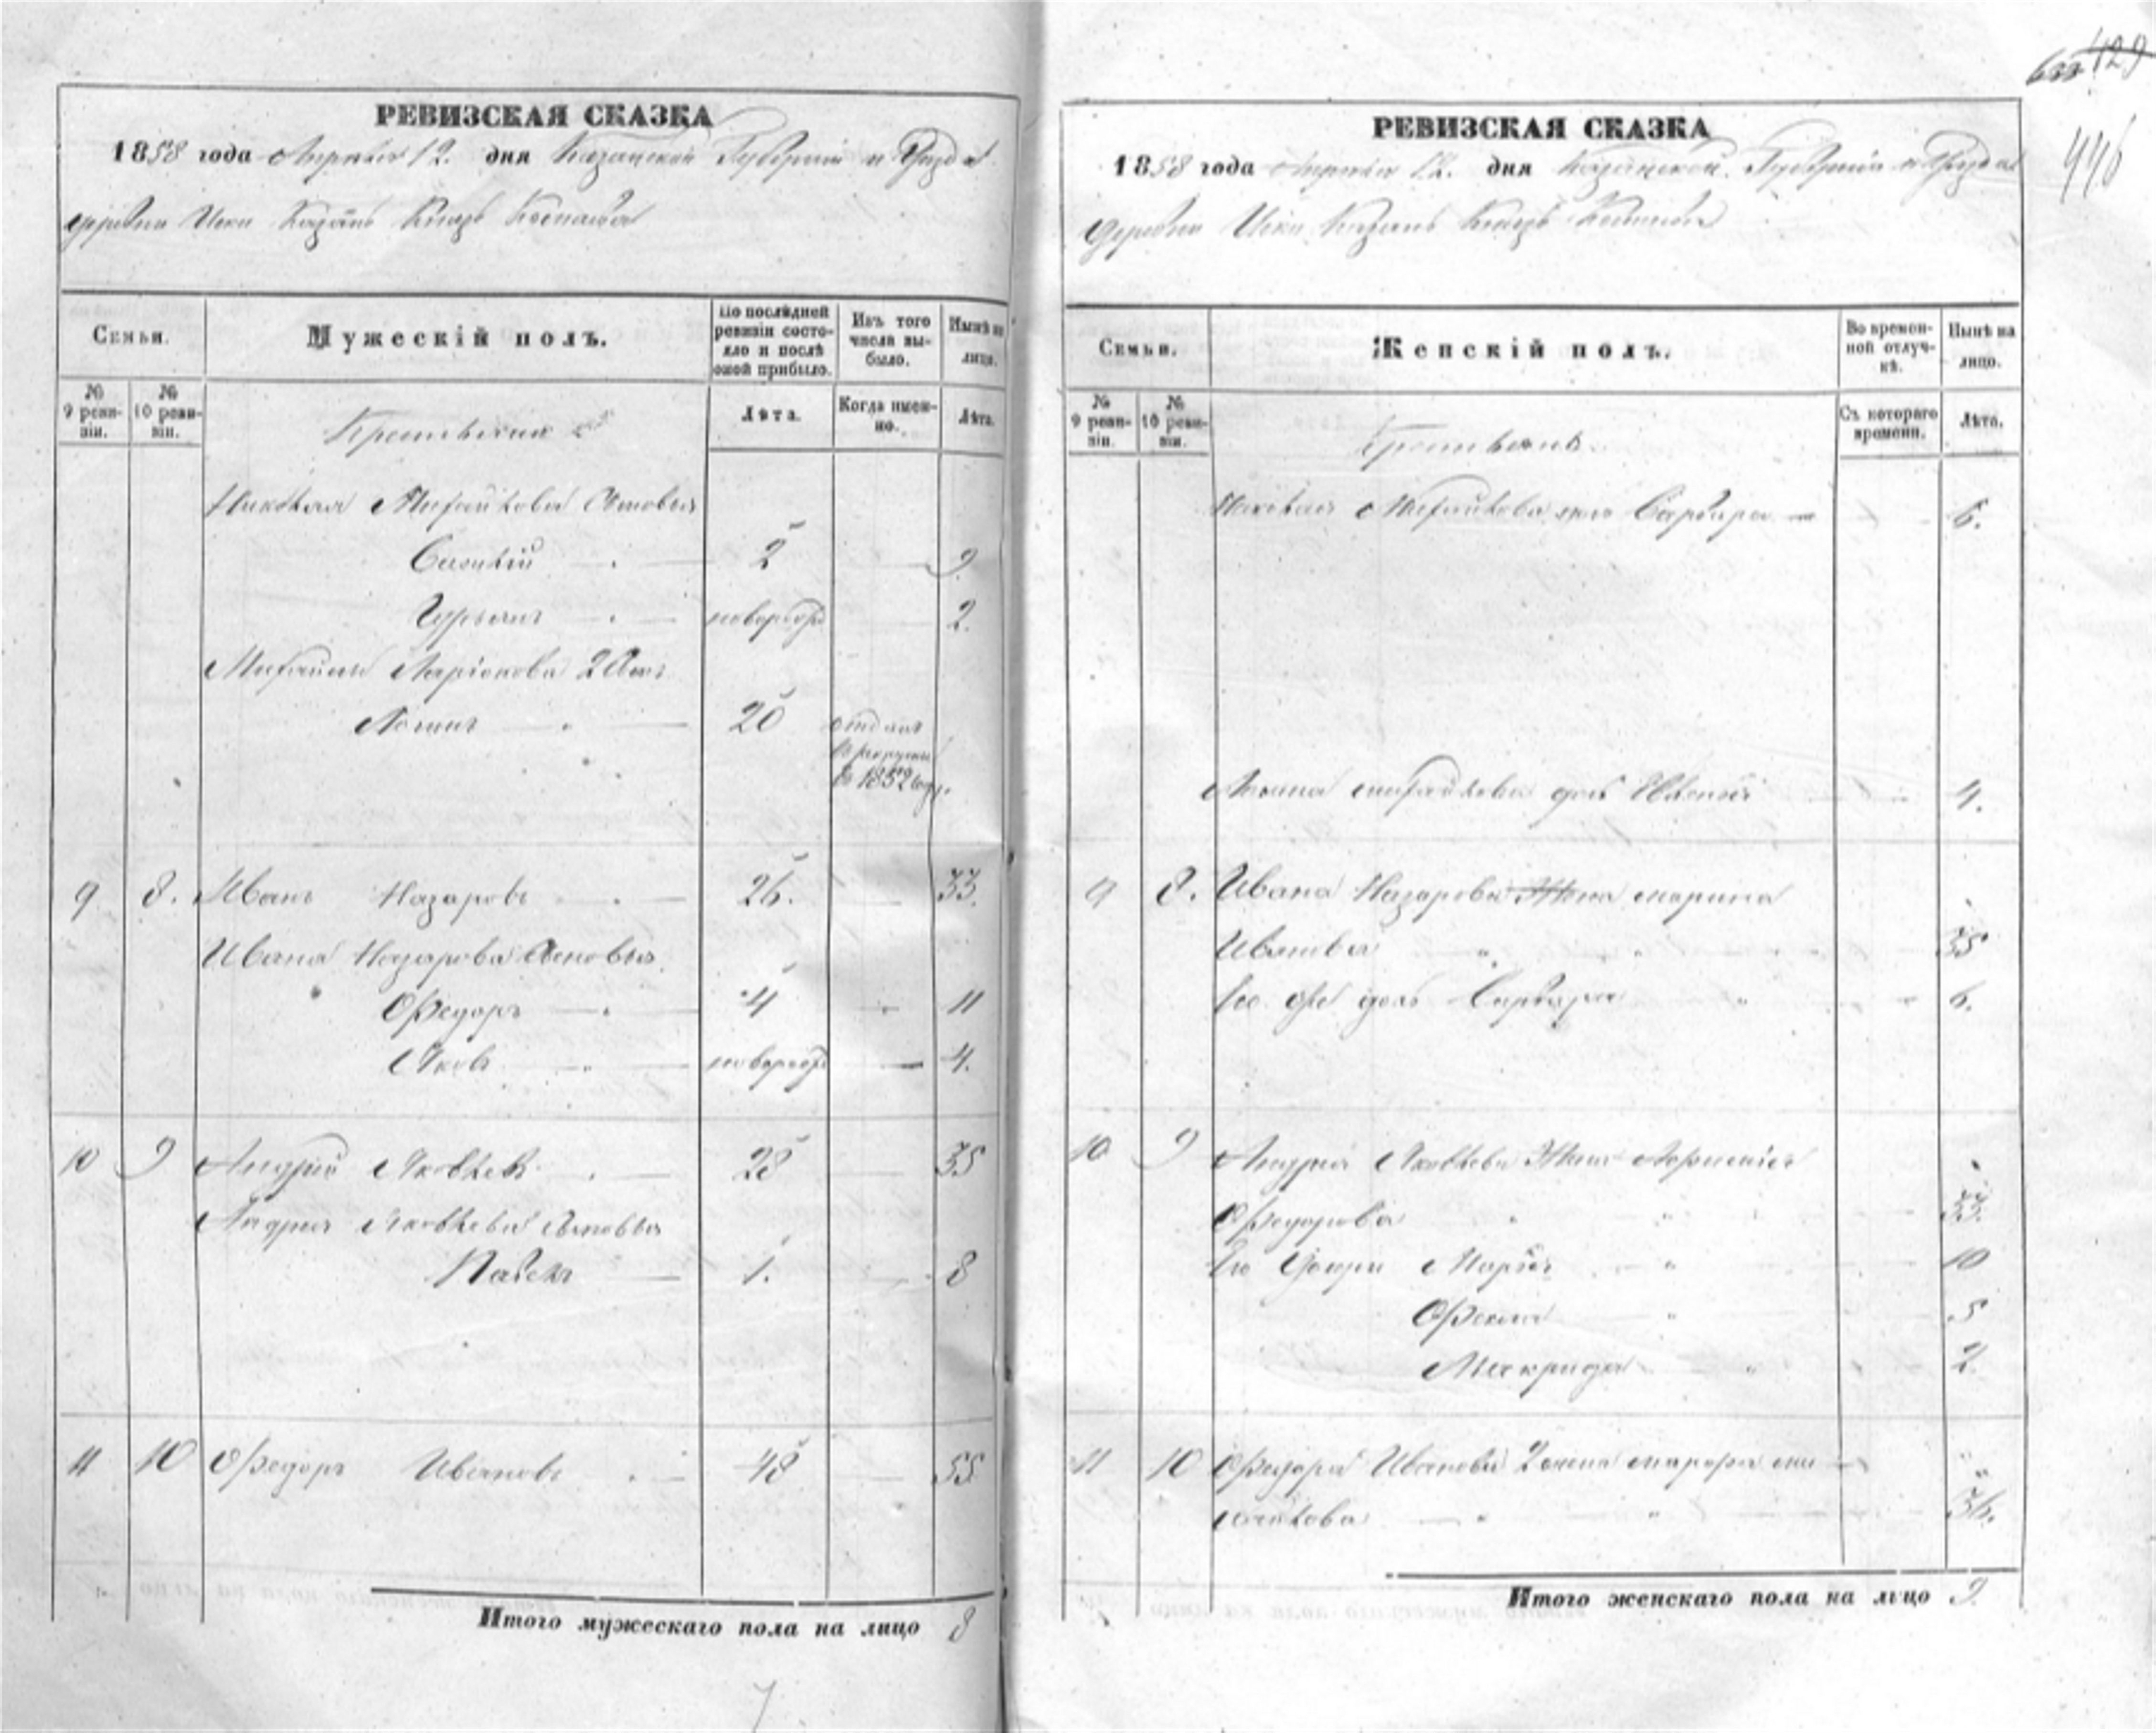 429
446
РЕВИЗСКАЯ СКАЗКА
1858 года Апреля 12. дня Казанской Губерніи и Уезда
деревни Иски Казань Князь
Семьи.
Мужескій полъ.
По послѣдней ревизіи состояло и послѣ оной прибыло.
Изъ того числа выбыло.
Нынѣ на лицо.
№ 9 ревизіи.
№ 10 ревизіи.
Лѣта.
Когда именно.
Лѣта.
Николая Михайлова
2 9
Гурьянъ новорожд 2.
Михайлы Ларіонова 2
20 отданъ
в рекруты
в 1852 году.
9 8. Иванъ Назаровъ 26. 33.
Ивана Назарова сыновья
Ѳедоръ 4 11
Яковъ новорожд 4.
10 9 Андрей Яковлевъ 28 35
Андрея Яковлева сыновья
Павелъ 1. 8
11 10 Ѳедоръ Ивановъ 48 55
Итого мужескаго пола на лицо 8
7
РЕВИЗСКАЯ СКАЗКА
1858 года Апреля 12. дня Казанской Губерніи и Уезда
Деревни Иски Казань Князь
Семьи.
Женскій полъ.
Во временной отлучкѣ.
Нынѣ на лицо.
№ 9 ревизіи.
№ 10 ревизіи.
Съ котораго времени.
Лѣта.
Николая Михайлова Варвара 6.
Михайлова дочь 4.
9 8. Ивана Назарова Жена Марина
35
дочь Варвара 6.
10 9 Андрея Яковлева Жена
Ѳедорова 33.
Его Дочери Марья 10
Ѳекла 5
Макрида 2.
11 10 Ѳедора Иванова 2 жена
36.
Итого женскаго пола на лицо 9.